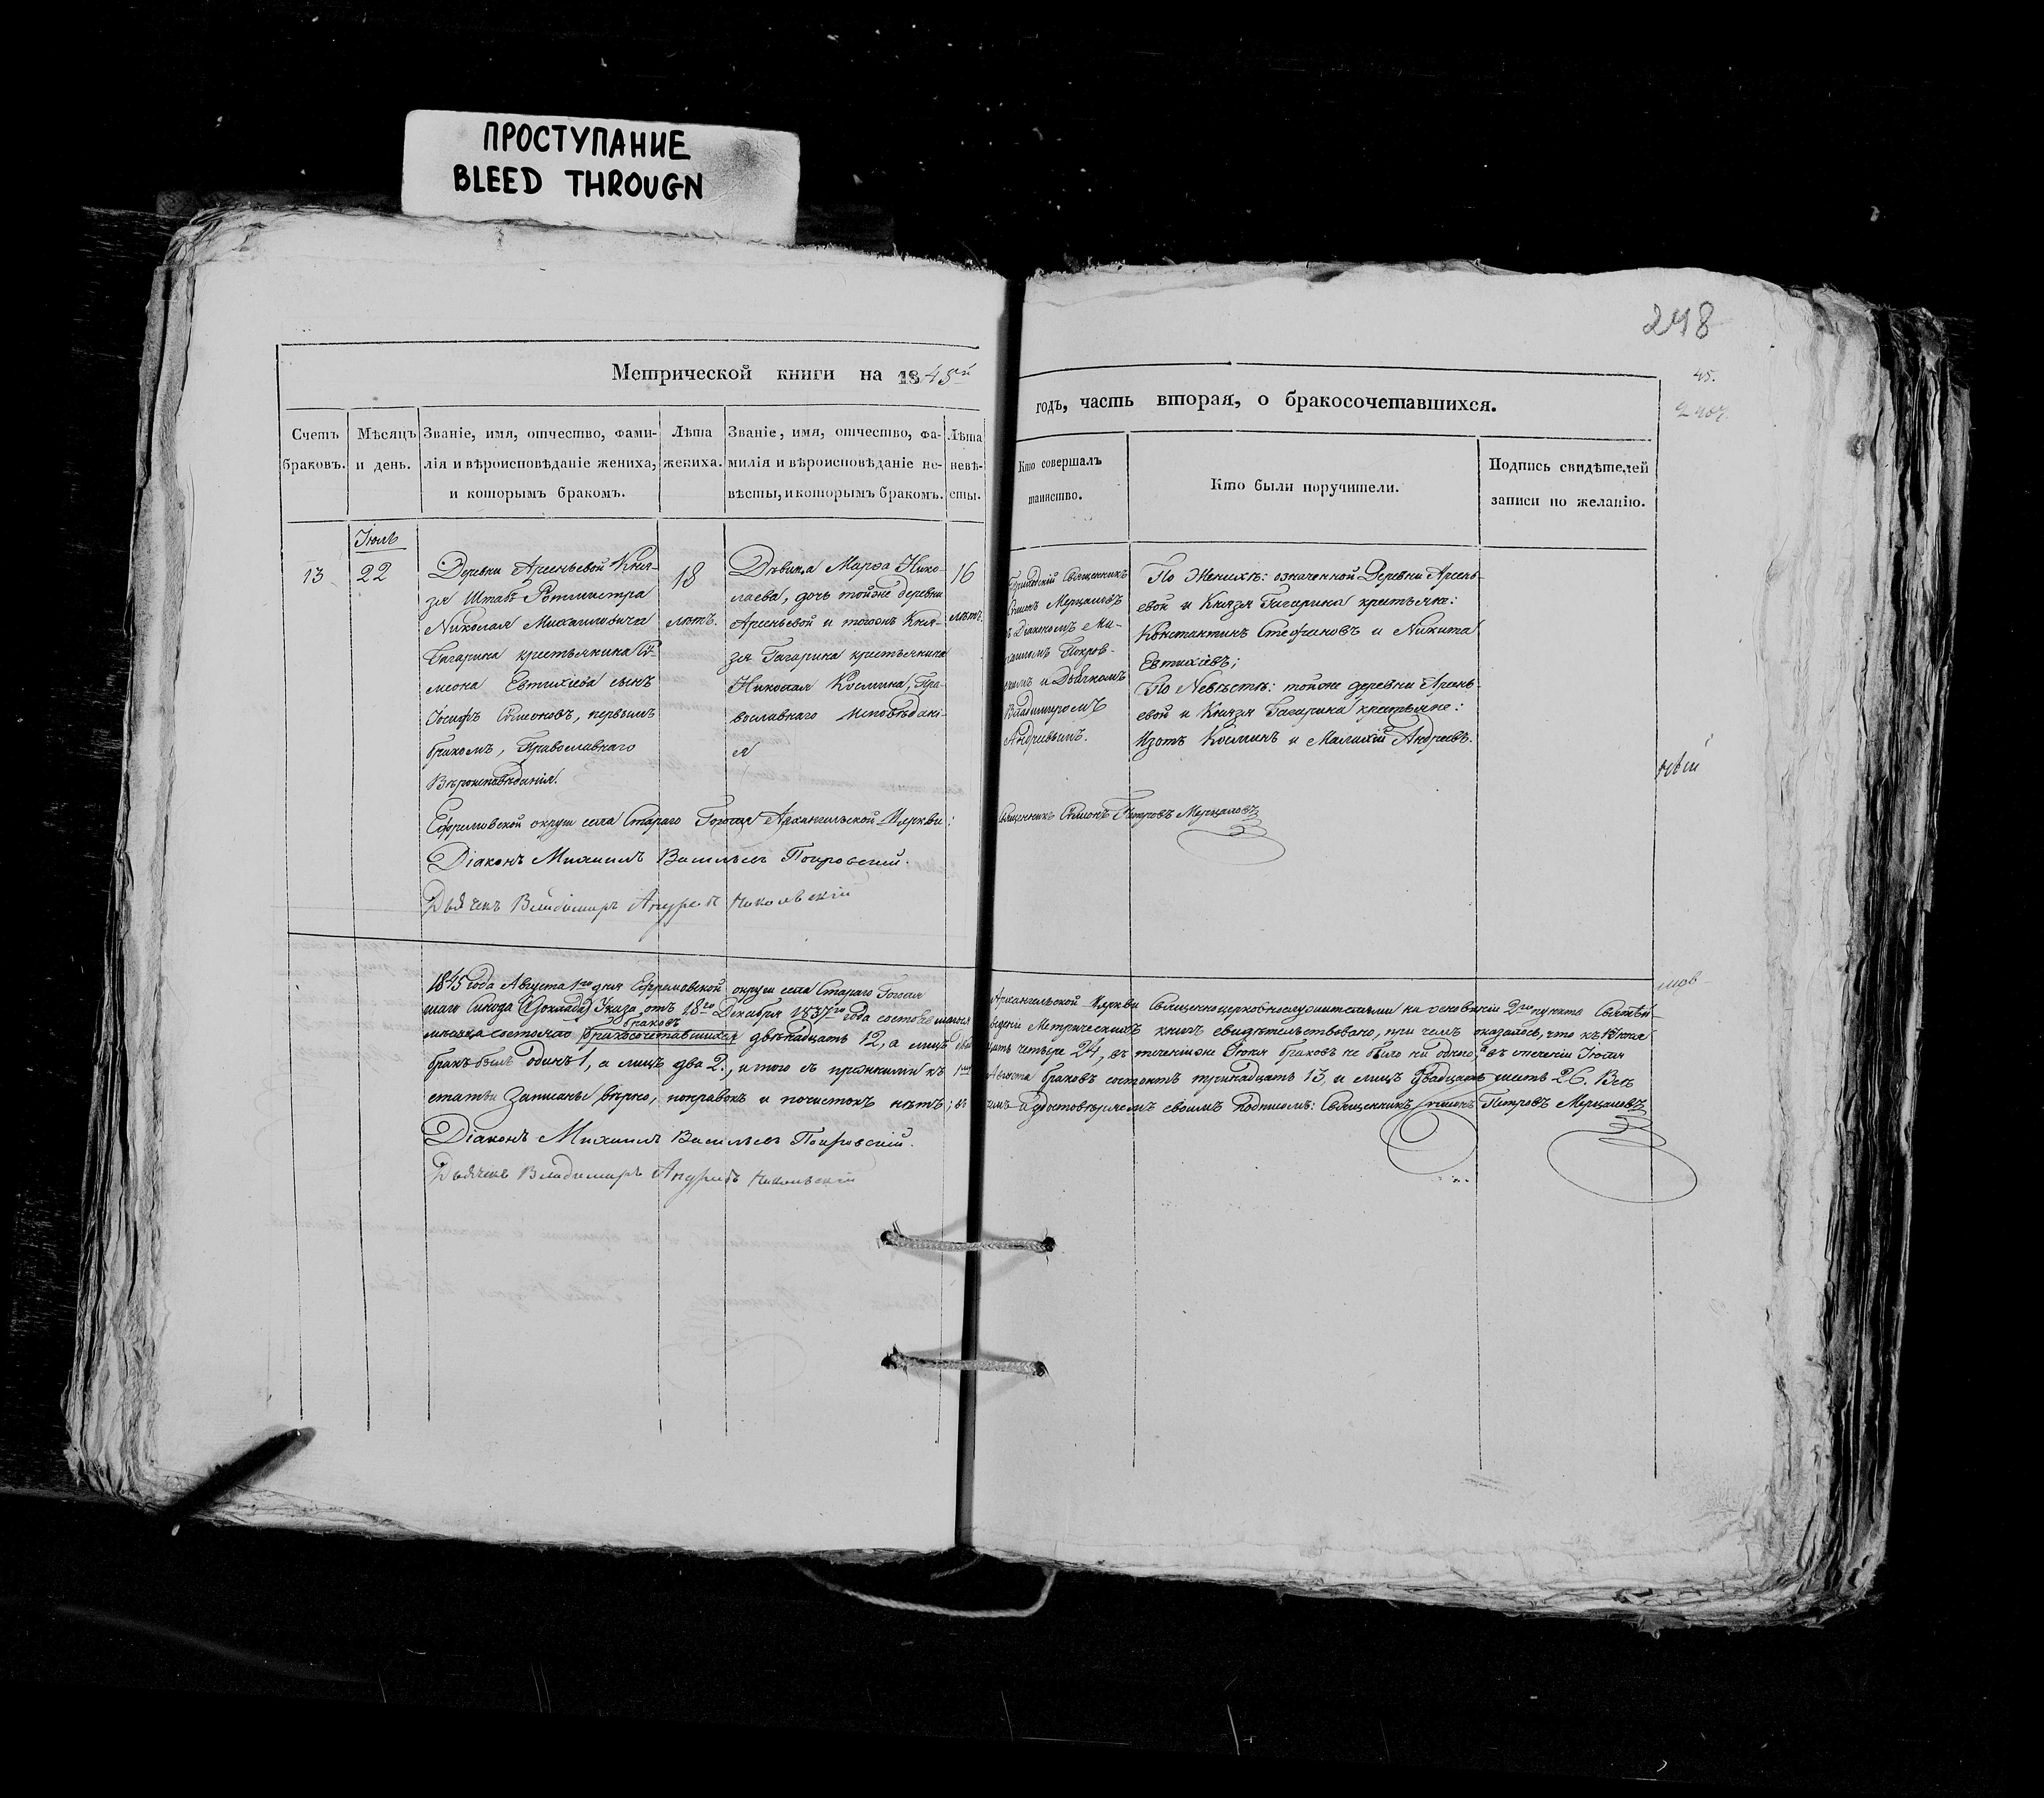 ПРОСТУПАНИЕ
BLEED THROUGN
248
45.
Метрической книги на 1845й
годъ, часть вторая, о бракосочетавшихся.
Счетъ браковъ.
Мѣсяцъ и день.
Званіе, имя, отчество, фами-
лія и вѣроисповѣданіе жениха,
и которымъ бракомъ.
Лѣта
жениха.
Званіе, имя, отчество, фа-
милія и вѣроисповѣданіе не-
вѣсты, и которымъ бракомъ.
Лѣта
невѣ-
сты.
Кто совершалъ
таинство.
Кто были поручители.
Подпись свидѣтелей
записи по желанію.
Іюль
13
22
Деревни Арсеньевой Кня-
зя Штабъ Ротмистра
Николая Михаиловича
Гагарина крестьянина Си-
меона Евтихіева сынъ
Іосифъ Симоновъ, первымъ
бракомъ, Православнаго
Вѣроисповѣданія.
18
лѣтъ.
Дѣвица Марѳа Нико-
лаева, дочь тойже деревни
Арсеньевой и тогожъ Кня-
зя Гагарина крестьянина
Николая Космина, Пра-
вославнаго Исповѣдані-
я
16
лѣтъ.
Священникъ
Симонъ Мерцаловъ
съ Діакономъ Ми-
хаиломъ Покров-
скимъ и Дьячкомъ
Владимиромъ
Андреевымъ.
По Женихѣ: означенной Деревни Арсень-
евой и Князя Гагарина крестьяне:
Константинъ Стефановъ и Никита
Евтихіевъ;
По Невѣстѣ: тойже деревни Арсень-
евой и Князя Гагарина крестьяне:
Изотъ Косминъ и Малахій Андреевъ.
Ефремовской округи села Стараго Гоголя Архангельской Церкви:
Священникъ Симонъ Петровъ Мерцаловъ
Діаконъ Михаилъ Васильевъ Покровскій.
Дьячекъ Владимиръ Андреевъ Никольскій
1845 года Августа 1го дня Ефремовской округи села Стараго Гоголя Архангельской Церкви Священноцерковнослужителями на основаніи 2го пункта Святѣй-
шаго Синода Указа, отъ 18го Декабря 1837го года состоявшагося, Метрическихъ книгъ свидѣтельствовано, при чемъ оказалось, что къ Іюня
браковъ
мѣсяца состояло бракосочетавшихся двѣнадцать 12, а лицъ двадцать четыре 24, въ теченіиже Іюня браковъ не было ни одного, а въ теченіи Іюля
бракъ былъ одинъ 1, а лицъ два 2, итого съ прежними къ 1му Августа браковъ состоитъ тринадцать 13, и лицъ двадцать шесть 26. Всѣ
статьи Записаны вѣрно, поправокъ и почистокъ нѣтъ; въ чемъ и удостовѣряемъ своимъ подписомъ: Священникъ Симонъ Петровъ Мерцаловъ
Діаконъ Михаилъ Васильевъ Покровскій.
Дьячекъ Владимиръ Андреевъ Никольскій